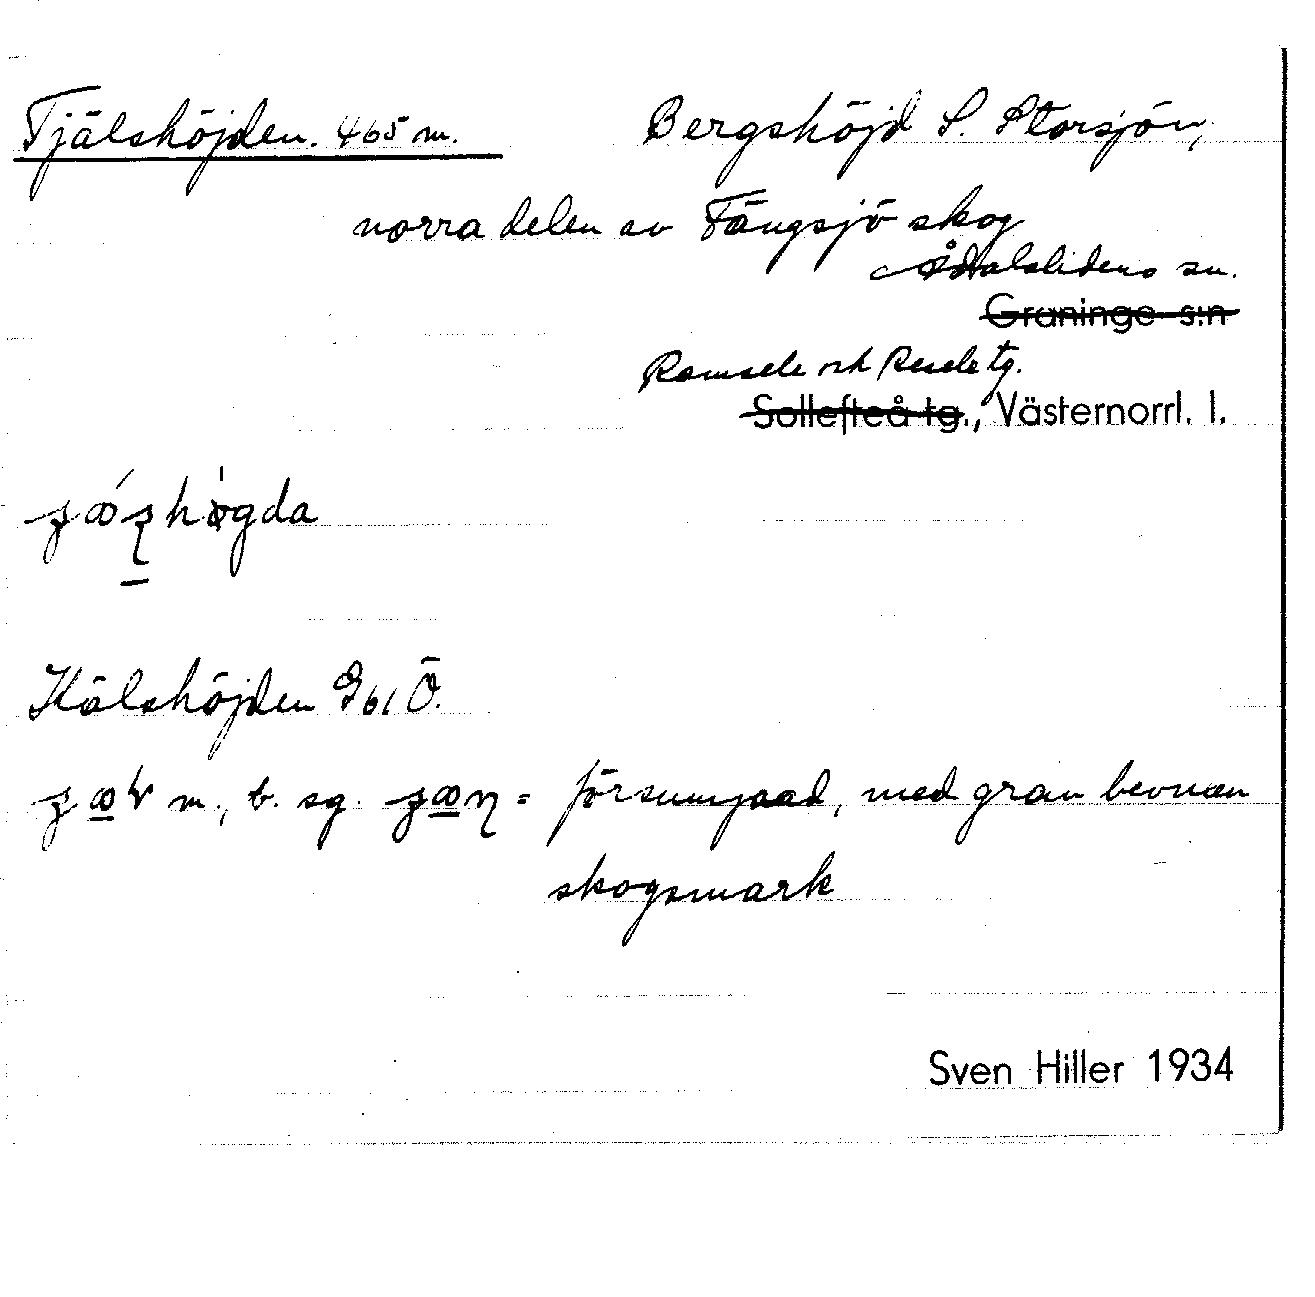 Tjälshöjden. 465 m. Bergshöjd S. Storsjön,
norra delen av Fängsjö skog
Ådalslidens sn.
Graninge s:n
Ramsele och Resele tg.
Sollefteå tg., Västernorrl. l.
högda
Kälshöjden G 61 Ö.
m., b. sg. = försumpad, med gran bevuxen
skogsmark
Sven Hiller 1934